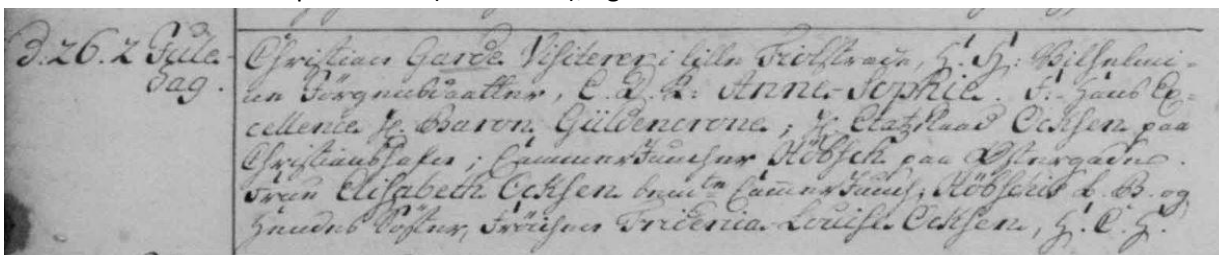 D. 26. 2 Jule-
dag.
Christian Garde Visiterer i lille Fiolstræde, H. H: Wilhelmi-
ne Jörgensdaatter, E. D. K: Anne-Sophie. F: Hans Ex-
cellence H. Baron Güldencrone; H. Etatzraad Ocksen paa
Christianshafn; Cammerjuncher Röbsch paa Östergade.
Frue Elisabeth Ocksen bemte Cammerjunch: Röbschis L. B. og
Hendes Söster, Fröichen Friderica-Louise Ocksen, H. C. H.